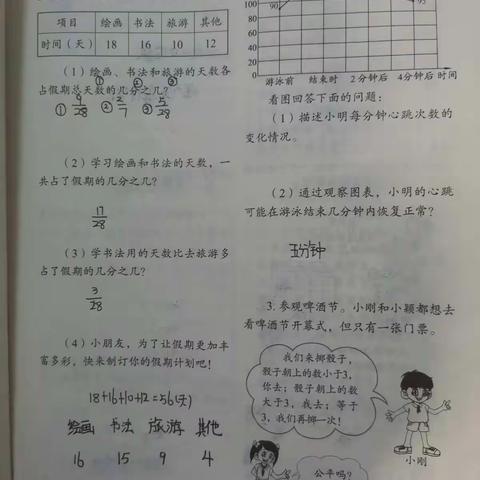 项目 绘画 书法 旅游 其他
时间（天） 18 16 10 12
（1）绘画、书法和旅游的天数各
① ② ③
占假期总天数的几分之几？
① 9/28 ② 2/7 ③ 5/28
（2）学习绘画和书法的天数，一
共占了假期的几分之几？
17/28
（3）学书法用的天数比去旅游多
占了假期的几分之几？
3/28
（4）小朋友，为了让假期更加丰
富多彩，快来制订你的假期计划吧！
18+16+10+12=56(天)
绘画 书法 旅游 其他
16 15 9 4
100
90
95
80
60
40
20
0
游泳前 结束时 2分钟后 4分钟后 时间
看图回答下面的问题：
（1）描述小明每分钟心跳次数的
变化情况。
（2）通过观察图表，小明的心跳
可能在游泳结束几分钟内恢复正常？
五分钟
3. 参观啤酒节。小刚和小颖都想去
看啤酒节开幕式，但只有一张门票。
我们来掷骰子，
骰子朝上的数小于3，
你去；骰子朝上的数
大于3，我去；等于
3，我们再掷一次！
小刚
公平吗？